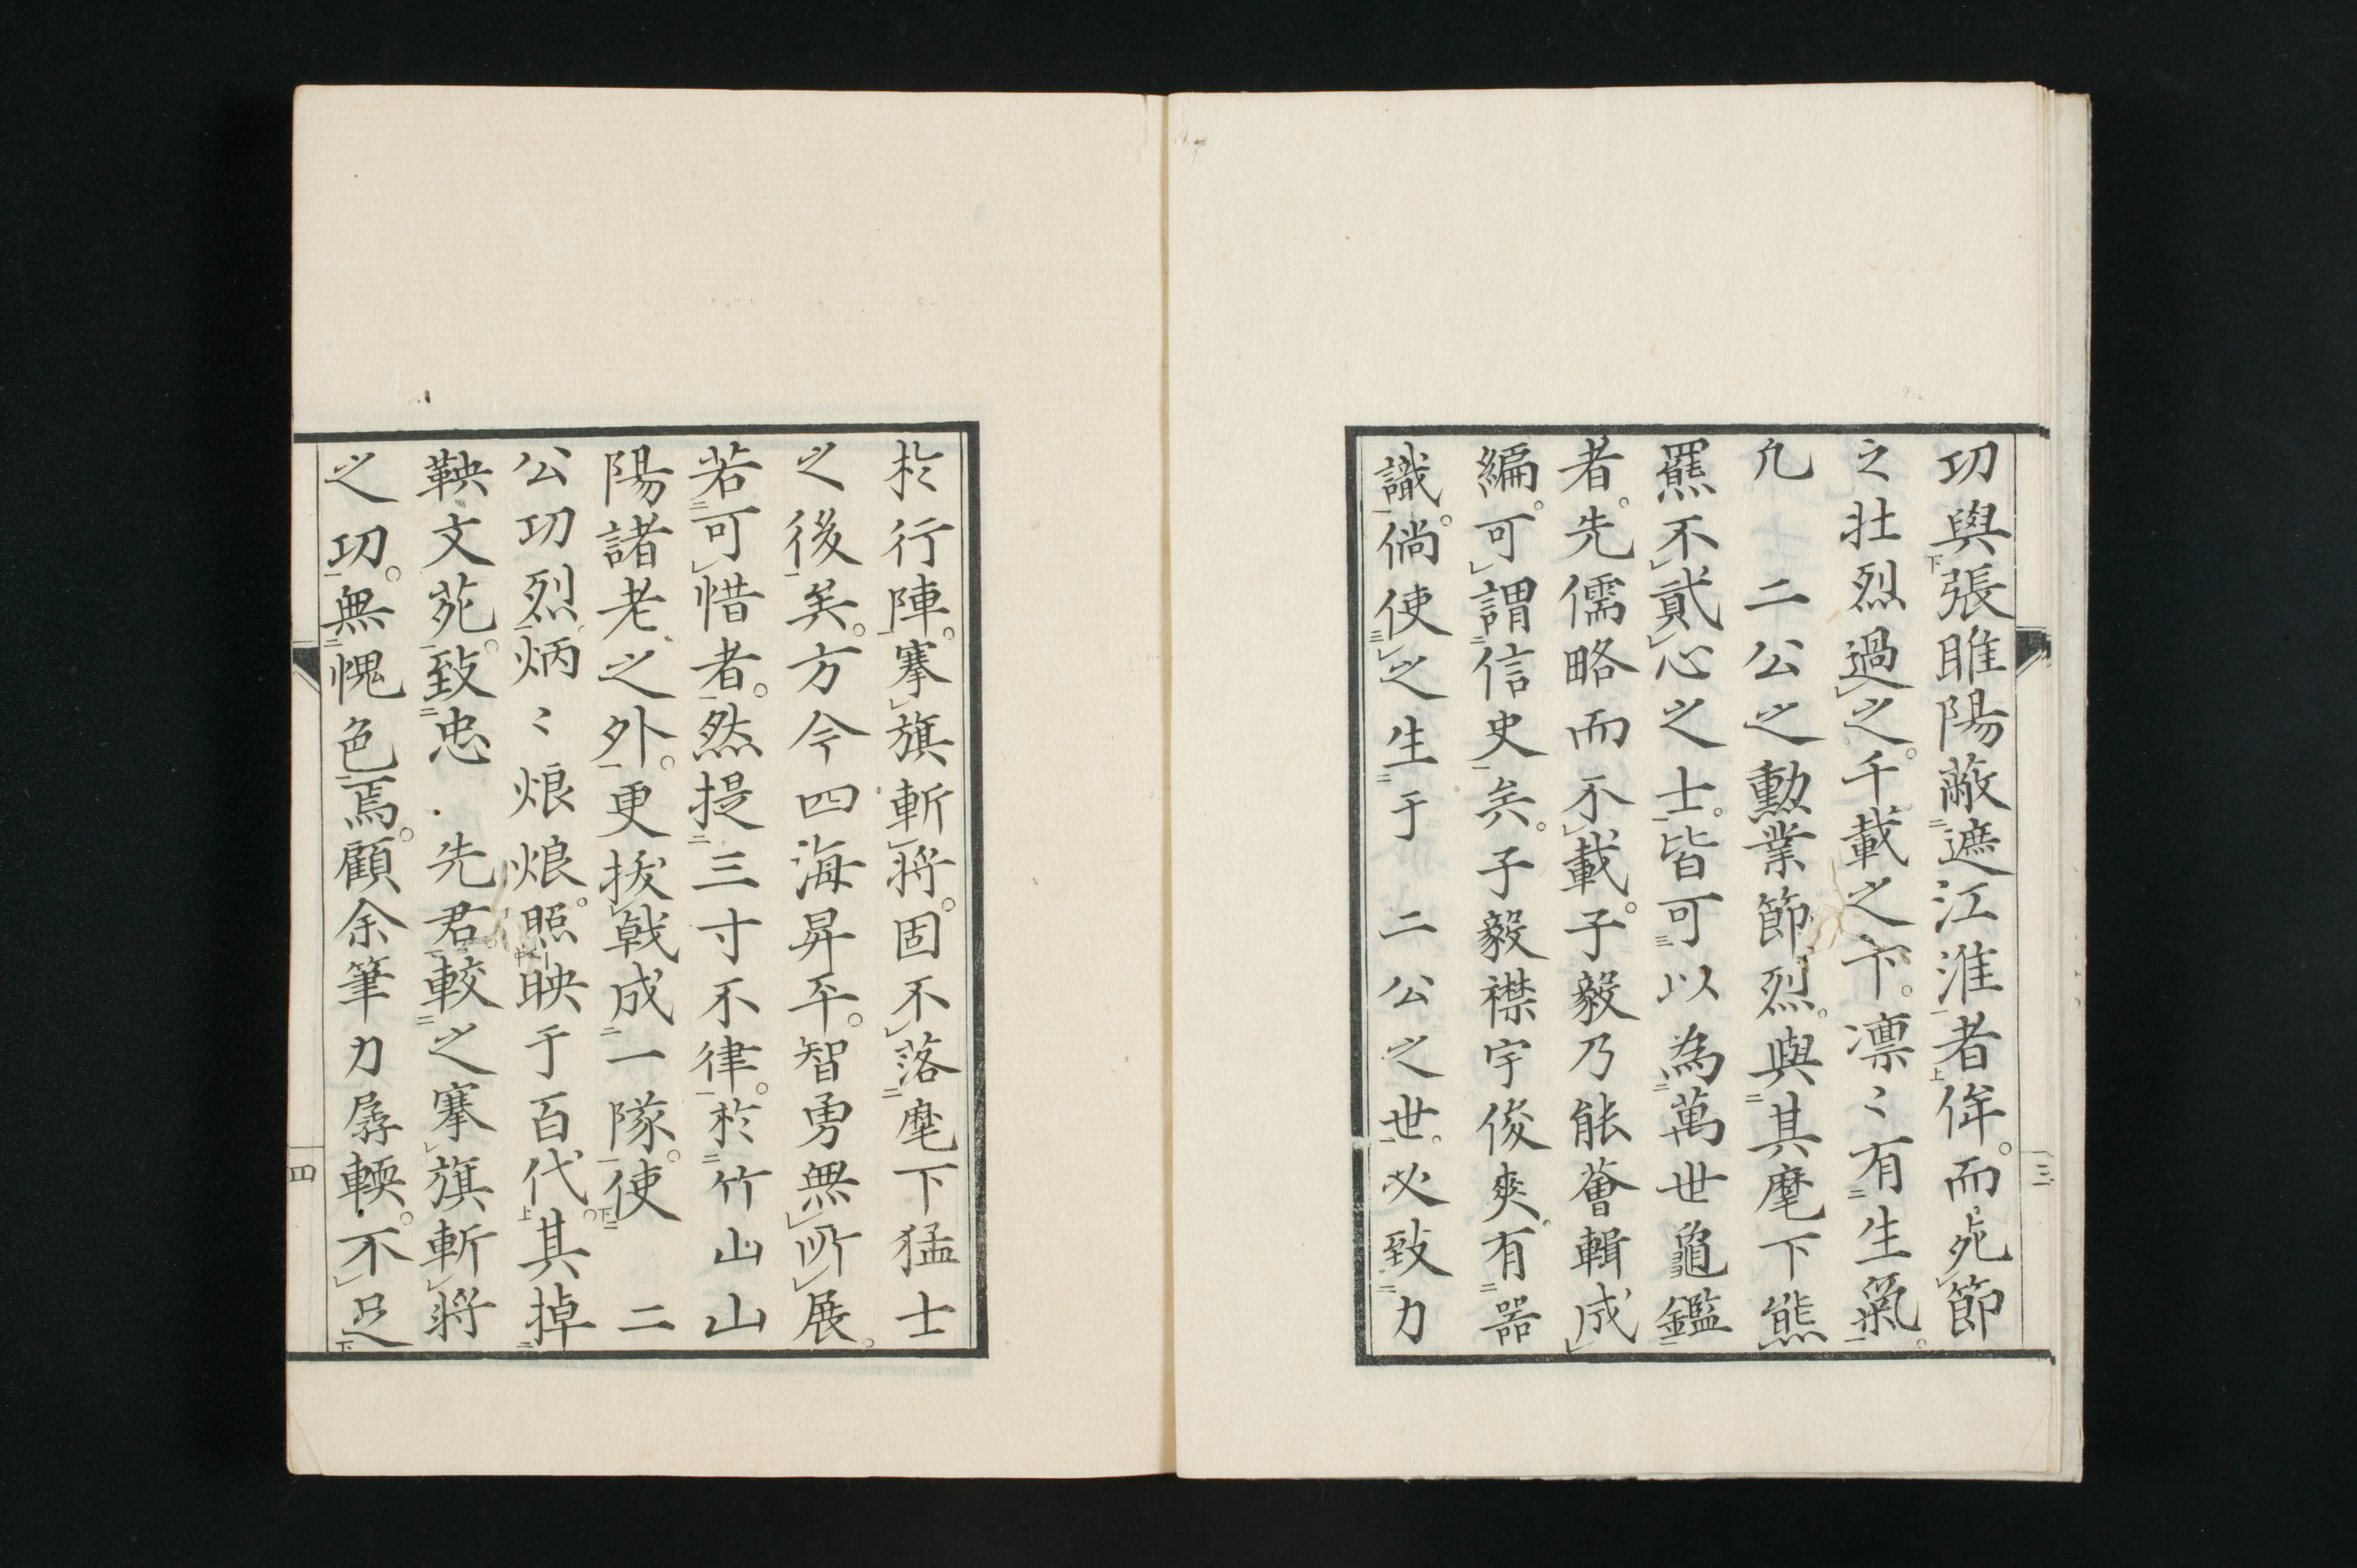 功與張睢陽蔽遮江淮者侔。而死節
之壮烈過之。千載之下。凛〻有生氣。
凢　二公之勳業節烈。與其麾下熊
羆不貳心之士。皆可以為萬世龜鑑
者。先儒略而不載。子毅乃能薈輯成
編。可謂信史矣。子毅襟宇俊爽。有器
識。倘使之生于　二公之世。必致力
三
於行陣。搴旗斬將。固不落麾下猛士
之後矣。方今四海昇平。智勇無所展。
若可惜者。然提三寸不律。於竹山山
陽諸老之外。更拔戟成一隊。使　二
公功烈炳〻烺烺。照映于百代。其掉
鞅文苑。致忠　先君。較之搴旗斬將
之功。無愧色焉。顧余筆力孱輭。不足
四